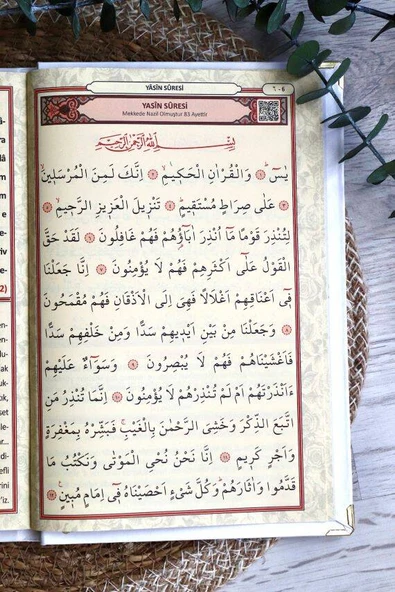 YÂSÎN SÛRESİ
٦ - 6
YASÎN SÛRESİ
Mekkede Nazil Olmuştur 83 Ayettir
بِسْمِ اللّٰهِ الرَّحْمٰنِ الرَّحِيمِ
يٰسٓ ﴿١﴾ وَالْقُرْاٰنِ الْحَكِيمِ ﴿٢﴾ اِنَّكَ لَمِنَ الْمُرْسَلِينَ
﴿٣﴾ عَلٰى صِرَاطٍ مُسْتَقِيمٍ ﴿٤﴾ تَنْزِيلَ الْعَزِيزِ الرَّحِيمِ ﴿٥﴾
لِتُنْذِرَ قَوْمًا مَٓا اُنْذِرَ اٰبَٓاؤُ۬هُمْ فَهُمْ غَافِلُونَ ﴿٦﴾ لَقَدْ حَقَّ
الْقَوْلُ عَلٰٓى اَكْثَرِهِمْ فَهُمْ لَا يُؤْمِنُونَ ﴿٧﴾ اِنَّا جَعَلْنَا
فِٓى اَعْنَاقِهِمْ اَغْلَالًا فَهِىَ اِلَى الْاَذْقَانِ فَهُمْ مُقْمَحُونَ
﴿٨﴾ وَجَعَلْنَا مِنْ بَيْنِ اَيْدِيهِمْ سَدًّا وَمِنْ خَلْفِهِمْ سَدًّا
فَاَغْشَيْنَاهُمْ فَهُمْ لَا يُبْصِرُونَ ﴿٩﴾ وَسَوَٓاءٌ عَلَيْهِمْ
ءَاَنْذَرْتَهُمْ اَمْ لَمْ تُنْذِرْهُمْ لَا يُؤْمِنُونَ ﴿١٠﴾ اِنَّمَا تُنْذِرُ مَنِ
اتَّبَعَ الذِّكْرَ وَخَشِىَ الرَّحْمٰنَ بِالْغَيْبِ فَبَشِّرْهُ بِمَغْفِرَةٍ
وَاَجْرٍ كَرِيمٍ ﴿١١﴾ اِنَّا نَحْنُ نُحْيِ الْمَوْتٰى وَنَكْتُبُ مَا
قَدَّمُوا وَاٰثَارَهُمْ وَكُلَّ شَىْءٍ اَحْصَيْنَاهُ فِٓى اِمَامٍ مُبِينٍ ﴿١٢﴾